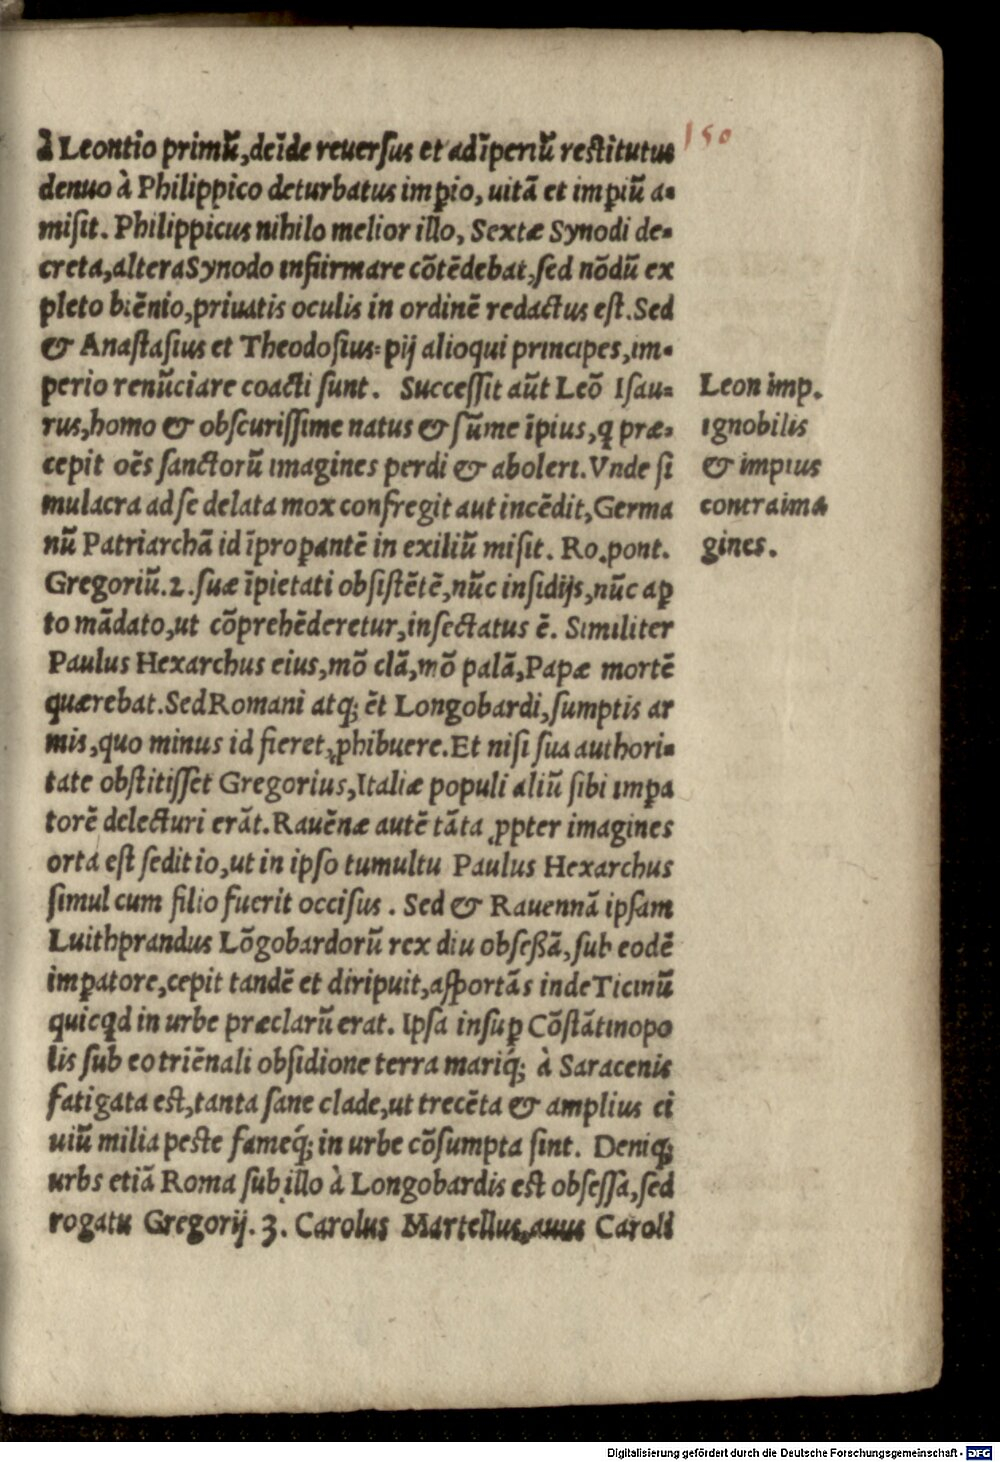 150
à Leontio primū,deīde reuerſus et ad īperiū reſtitutus
denuo à Philippico deturbatus imꝑio, uitā et imꝑiū a-
miſit. Philippicus nihilo melior illo, Sextæ Synodi de-
creta,altera Synodo infiirmare cōtēdebat,ſed nōdū ex
pleto biēnio,priuatis oculis in ordinē redactus eſt.Sed
& Anaſtaſius et Theodoſius: pij alioqui principes,im-
perio renūciare coacti ſunt. Succeſſit aūt Leō Iſau-
rus,homo & obſcuriſſime natus & ſūme īpius,q præ-
cepit oēs ſanctorū imagines perdi & aboleri.Vnde ſi
mulacra ad ſe delata mox confregit aut incēdit,Germa
nū Patriarchā id īprobantē in exiliū miſit. Ro.pont.
Gregoriū.2.ſuæ īpietati obſiſtētē,nūc inſidijs,nūc aꝑ
to mādato,ut cōprehēderetur,inſectatus ē. Similiter
Paulus Hexarchus eius,mō clā,mō palā,Papæ mortē
quærebat.Sed Romani atq; ēt Longobardi,ſumptis ar
mis,quo minus id fieret,ꝓhibuere.Et niſi ſua authori-
tate obſtitiſſet Gregorius,Italiæ populi aliū ſibi imꝑa
torē delecturi erāt.Rauēnæ autē tāta ꝓpter imagines
orta eſt ſeditio,ut in ipſo tumultu Paulus Hexarchus
ſimul cum filio fuerit occiſus. Sed & Rauennā ipſam
Luithprandus Lōgobardorū rex diu obſeßā,ſub eodē
imꝑatore,cepit tandē et diripuit,aſportās inde Ticinū
quicqd in urbe præclarū erat. Ipſa inſuꝑ Cōſtātinopo
lis ſub eo triēnali obſidione terra mariq́; à Saracenis
fatigata eſt,tanta ſane clade,ut trecēta & amplius ci
uiū milia peſte fameq́; in urbe cōſumpta ſint. Deniq;
urbs etiā Roma ſub illo à Longobardis eſt obſeſſa,ſed
rogatu Gregorij.3. Carolus Martellus,auus Caroli
Leon imp.
ignobilis
& impius
contra ima
gines.
Digitalisierung gefördert durch die Deutsche Forschungsgemeinschaft - DFG